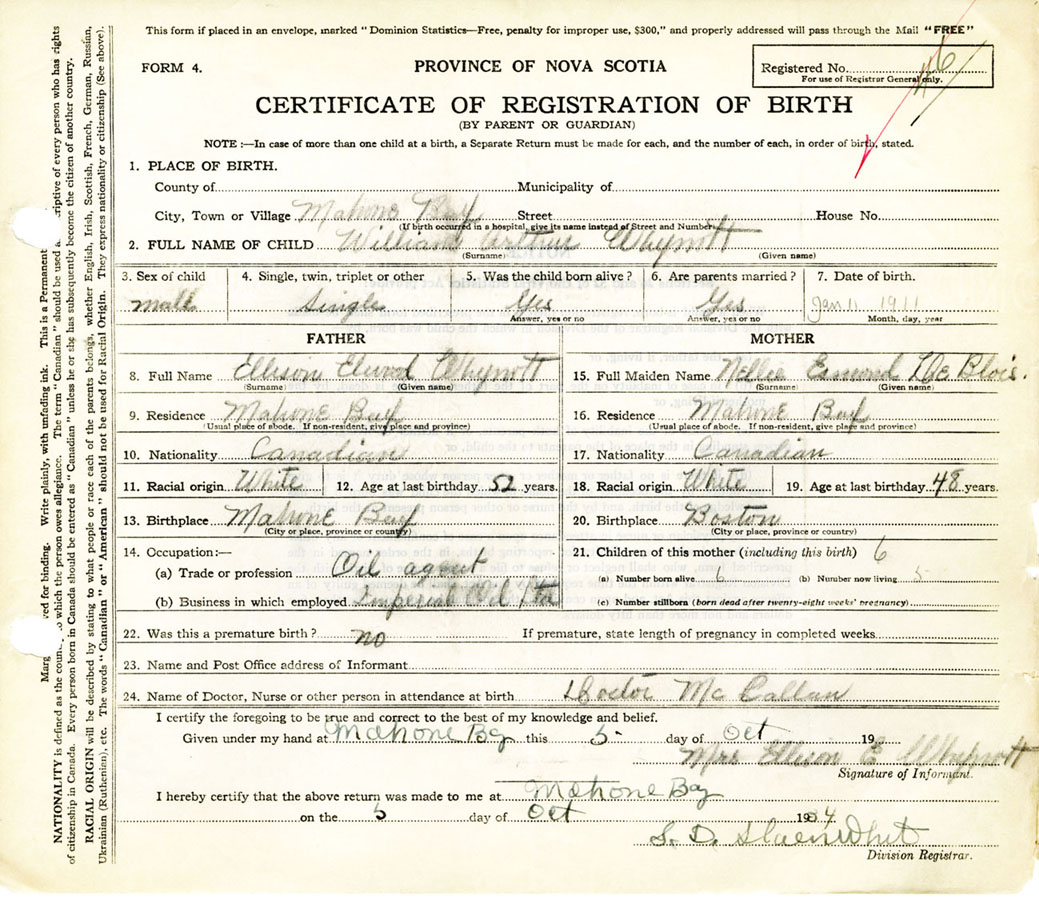 This form if placed in an envelope, marked "Dominion Statistics—Free, penalty for improper use, $300," and properly addressed will pass through the Mail "FREE"
FORM 4.
PROVINCE OF NOVA SCOTIA
Registered No.
For use of Registrar General only.
CERTIFICATE OF REGISTRATION OF BIRTH
(BY PARENT OR GUARDIAN)
NOTE :—In case of more than one child at a birth, a Separate Return must be made for each, and the number of each, in order of birth, stated.
1. PLACE OF BIRTH.
County of Municipality of
City, Town or Village Mahone Bay Street House No.
(If birth occurred in a hospital, give its name instead of Street and Number)
2. FULL NAME OF CHILD William Arthur Whynott
(Surname) (Given name)
3. Sex of child 4. Single, twin, triplet or other 5. Was the child born alive ? 6. Are parents married ? 7. Date of birth.
male Single Yes Yes Jan 11 1911
Answer, yes or no Answer, yes or no Month, day, year
FATHER MOTHER
8. Full Name Ellison Whynott 15. Full Maiden Name Nellie Esmond De Blois.
(Surname) (Given name) (Surname) (Given name)
9. Residence Mahone Bay 16. Residence Mahone Bay
(Usual place of abode. If non-resident, give place and province) (Usual place of abode. If non-resident, give place and province)
10. Nationality Canadian 17. Nationality Canadian
11. Racial origin White 12. Age at last birthday 52 years. 18. Racial origin White 19. Age at last birthday 48 years.
13. Birthplace Mahone Bay 20. Birthplace Boston
(City or place, province or country) (City or place, province or country)
14. Occupation:— 21. Children of this mother (including this birth) 6
(a) Trade or profession Oil agent (a) Number born alive 6 (b) Number now living 5
(b) Business in which employed Imperial Oil Ltd (c) Number stillborn (born dead after twenty-eight weeks' pregnancy)
22. Was this a premature birth ? no If premature, state length of pregnancy in completed weeks
23. Name and Post Office address of Informant
24. Name of Doctor, Nurse or other person in attendance at birth Doctor Mc
I certify the foregoing to be true and correct to the best of my knowledge and belief.
Given under my hand at Mahone Bay this 5 day of Oct 19
Mrs Ellison E Whynott
Signature of Informant.
I hereby certify that the above return was made to me at Mahone Bay
on the 5 day of Oct 1934
S. D.
Division Registrar.
Marg ved for binding. Write plainly, with unfading ink. This is a Permanent
NATIONALITY is defined as the coun to which the person owes allegiance. The term "Canadian" should be used a criptive of every person who has rights
of citizenship in Canada. Every person born in Canada should be entered as "Canadian" unless he or she has subsequently become the citizen of another country.
RACIAL ORIGIN will be described by stating to what people or race each of the parents belongs, whether English, Irish, Scottish, French, German, Russian,
Ukrainian (Ruthenian), etc. The words "Canadian" or "American" should not be used for Racial Origin. They express nationality or citizenship (See above).